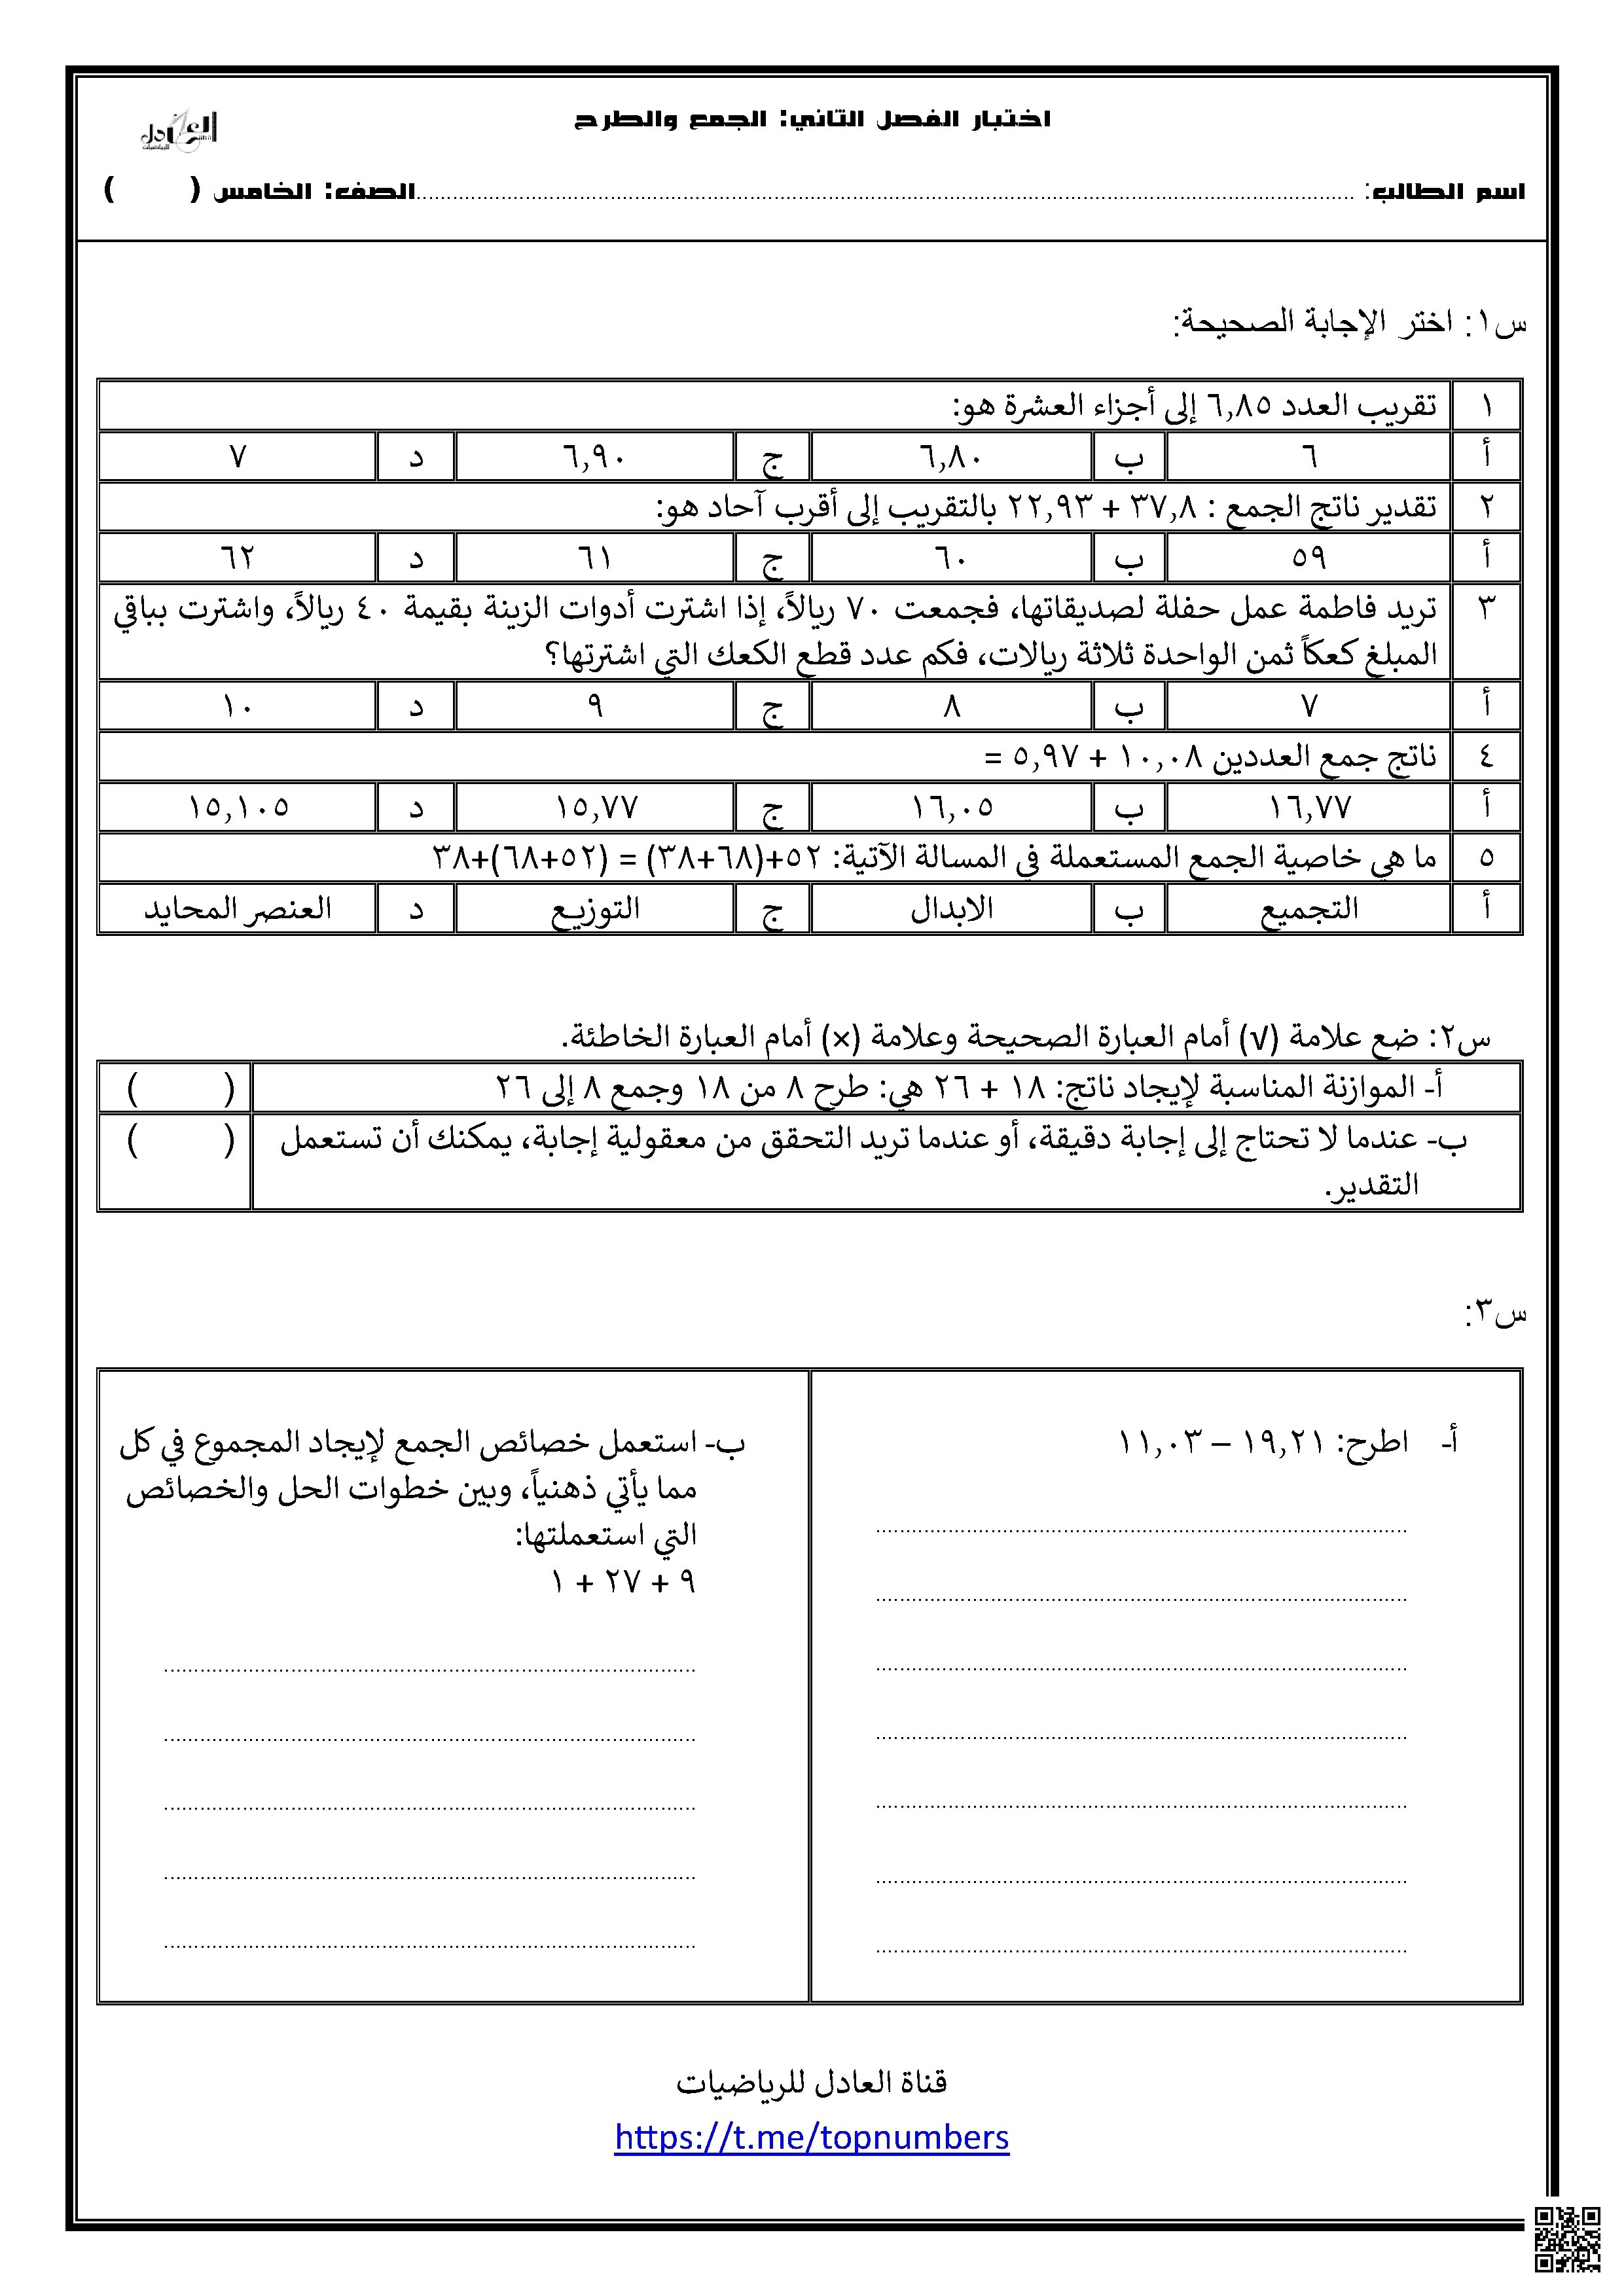 اختبار الفصل الثاني: الجمع والطرح
العادل
للرياضيات
اسم الطالب: ........................................الصف: الخامس (        )
س١: اختر الإجابة الصحيحة:
١ تقريب العدد ٦,٨٥ إلى أجزاء العشرة هو:
أ ٦ ب ٦,٨٠ ج ٦,٩٠ د ٧
٢ تقدير ناتج الجمع : ٣٧,٨ + ٢٢,٩٣ بالتقريب إلى أقرب آحاد هو:
أ ٥٩ ب ٦٠ ج ٦١ د ٦٢
٣ تريد فاطمة عمل حفلة لصديقاتها، فجمعت ٧٠ ريالاً، إذا اشترت أدوات الزينة بقيمة ٤٠ ريالاً، واشترت بباقي
المبلغ كعكاً ثمن الواحدة ثلاثة ريالات، فكم عدد قطع الكعك التي اشترتها؟
أ ٧ ب ٨ ج ٩ د ١٠
٤ ناتج جمع العددين ١٠,٠٨ + ٥,٩٧ =
أ ١٦,٧٧ ب ١٦,٠٥ ج ١٥,٧٧ د ١٥,١٠٥
٥ ما هي خاصية الجمع المستعملة في المسالة الآتية: ٥٢+(٦٨+٣٨) = (٥٢+٦٨)+٣٨
أ التجميع ب الابدال ج التوزيع د العنصر المحايد
س٢: ضع علامة (√) أمام العبارة الصحيحة وعلامة (×) أمام العبارة الخاطئة.
أ- الموازنة المناسبة لإيجاد ناتج: ١٨ + ٢٦ هي: طرح ٨ من ١٨ وجمع ٨ إلى ٢٦ (        )
ب- عندما لا تحتاج إلى إجابة دقيقة، أو عندما تريد التحقق من معقولية إجابة، يمكنك أن تستعمل (        )
التقدير.
س٣:
أ- اطرح: ١٩,٢١ – ١١,٠٣
ب- استعمل خصائص الجمع لإيجاد المجموع في كل
مما يأتي ذهنياً، وبين خطوات الحل والخصائص
التي استعملتها:
٩ + ٢٧ + ١
قناة العادل للرياضيات
https://t.me/topnumbers